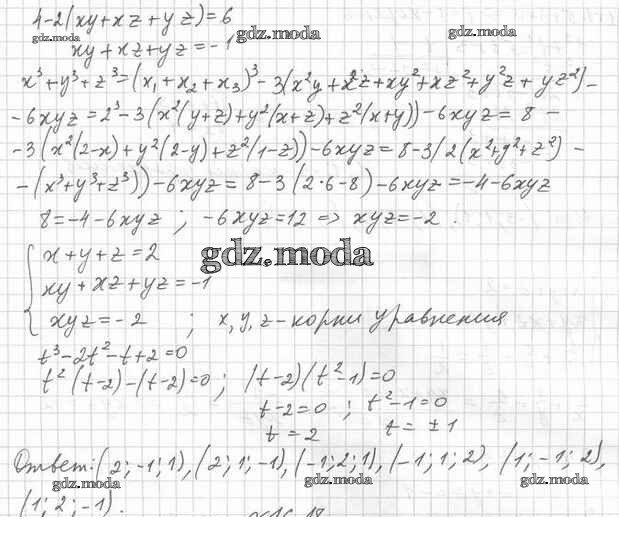 4-2(xy+xz+yz)=6
gdz.moda gdz.moda gdz.moda
xy+xz+yz=-1
x³+y³+z³=(x₁+x₂+x₃)³-3(x²y+x²z+xy²+xz²+y²z+yz²)-
-6xyz=2³-3(x²(y+z)+y²(x+z)+z²(x+y))-6xyz=8-
-3(x²(2-x)+y²(2-y)+z²(1-z))-6xyz=8-3(2(x²+y²+z²)-
-(x³+y³+z³))-6xyz=8-3(2·6-8)-6xyz=-4-6xyz
8=-4-6xyz; -6xyz=12 => xyz=-2.
gdz.moda
x+y+z=2
xy+xz+yz=-1
xyz=-2; x,y,z-корни уравнения
t³-2t²-t+2=0
t²(t-2)-(t-2)=0; (t-2)(t²-1)=0
t-2=0; t²-1=0
t=2 t=±1
Ответ: (2;-1;1), (2;1;-1), (-1;2;1), (-1;1;2), (1;-1;2),
gdz.moda gdz.moda gdz.moda
(1;2;-1).